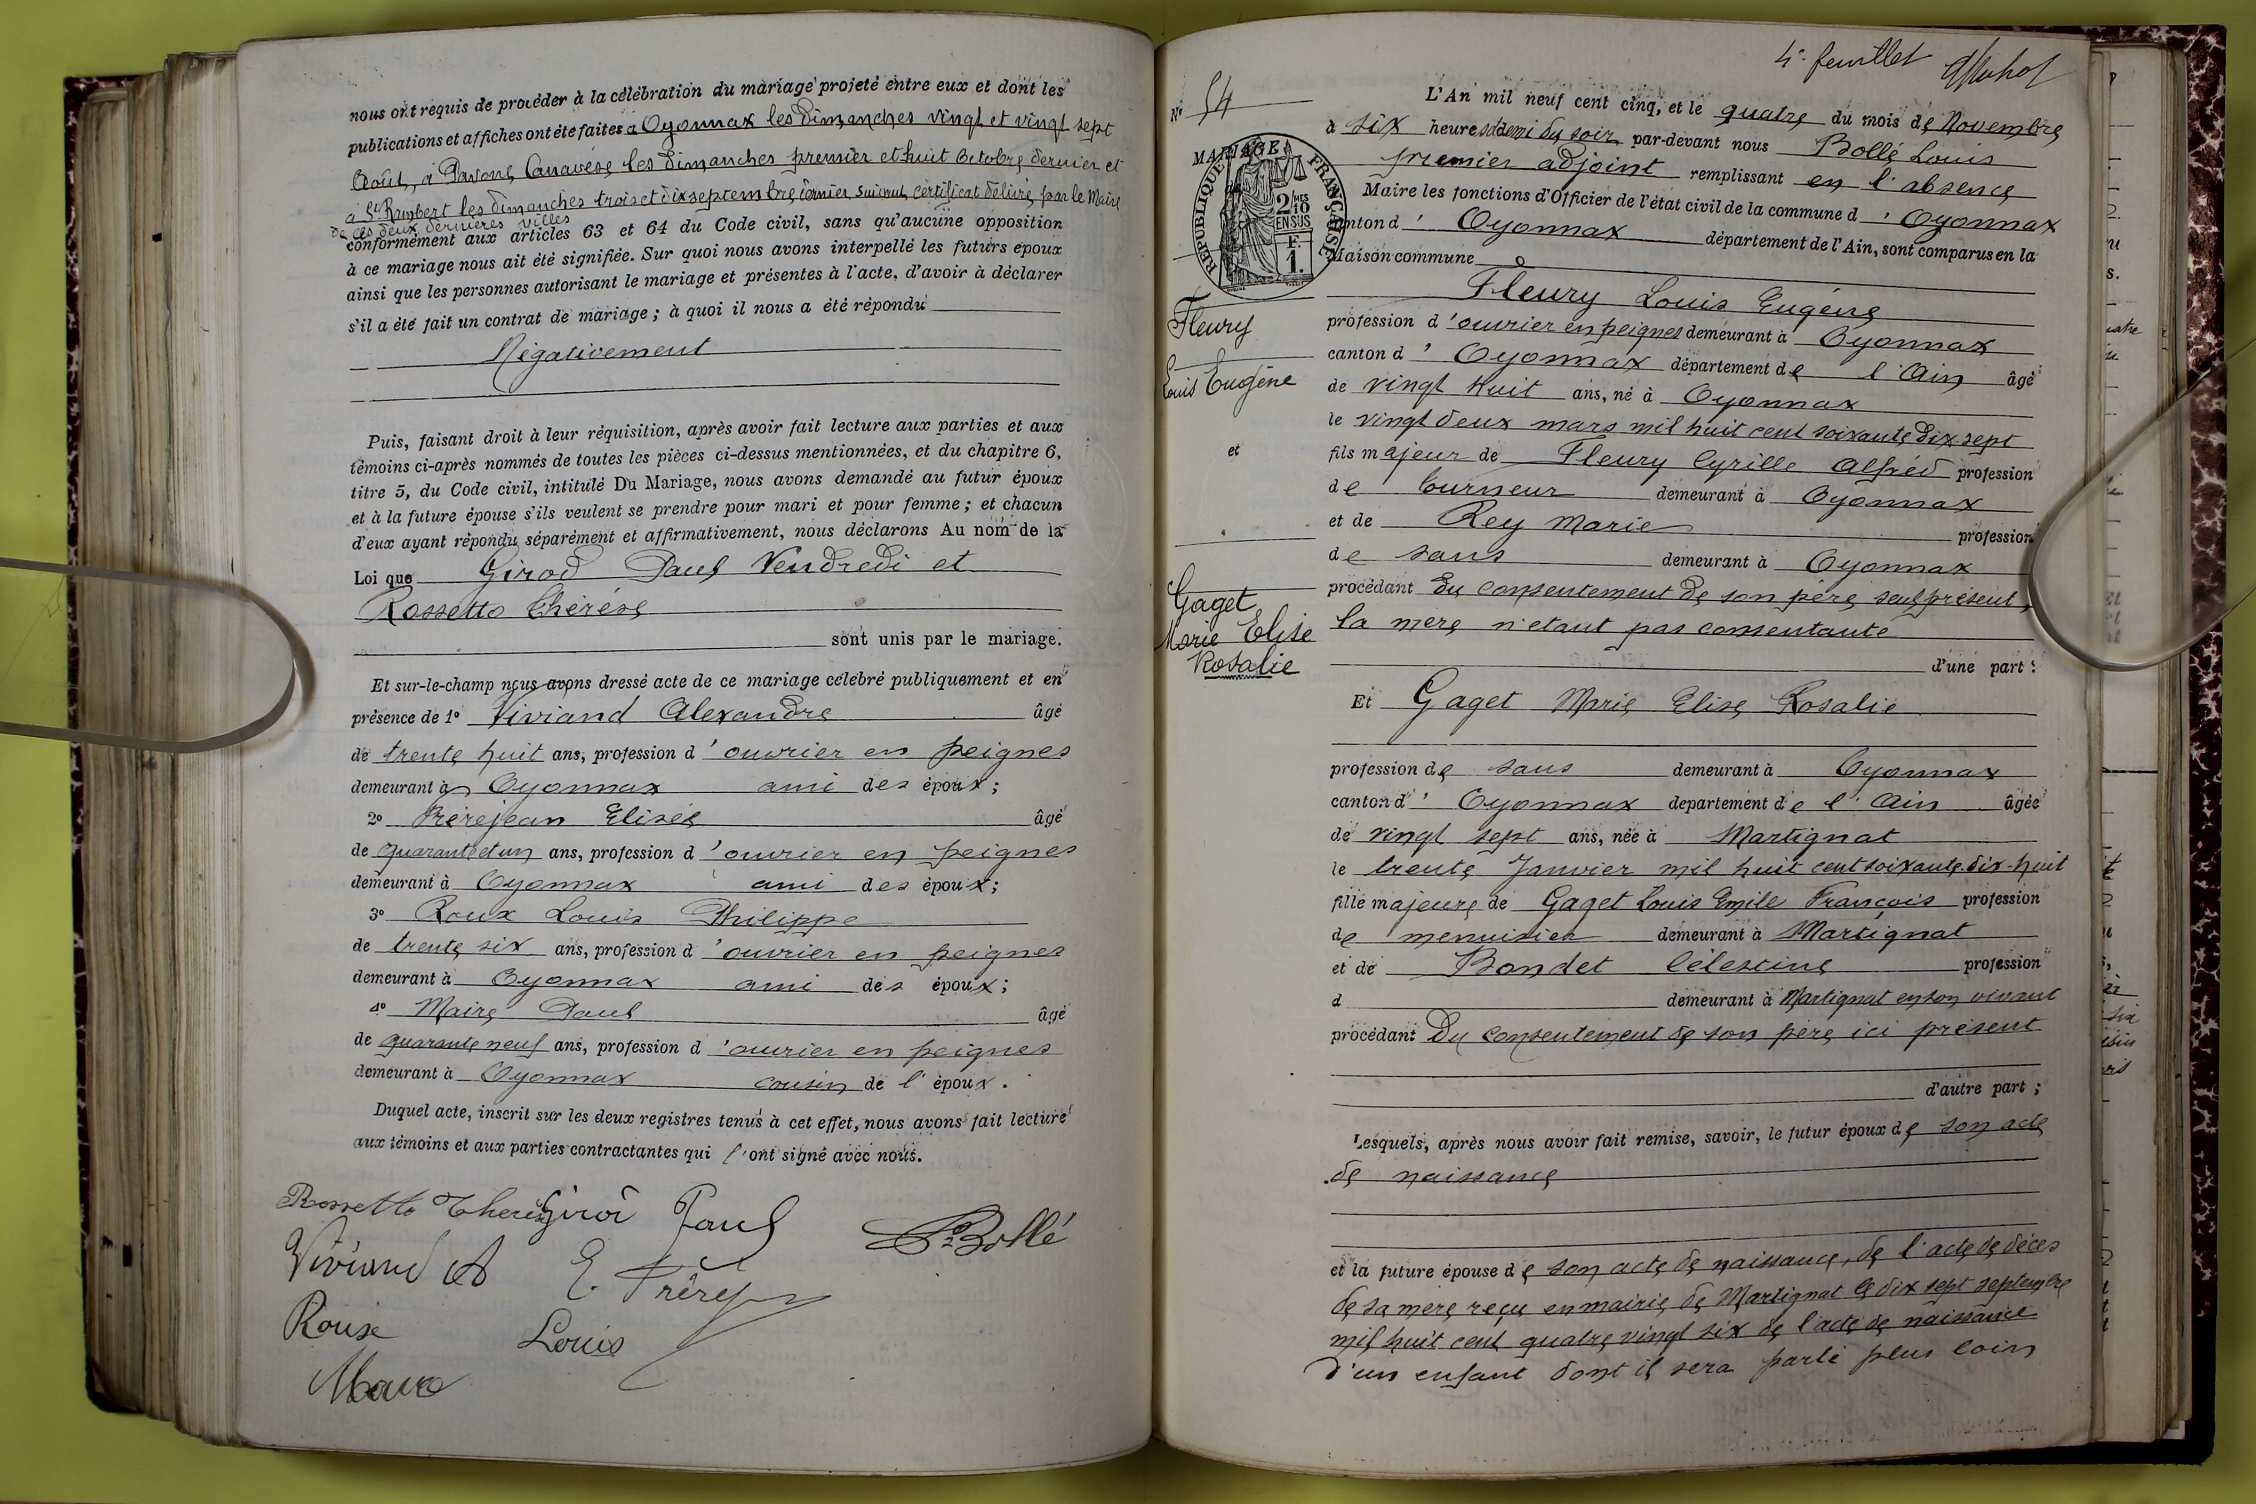 nous ont requis de procéder à la célébration du mariage projeté entre eux et dont les
publications et affiches ont été faites à Oyonnax les dimanches vingt et vingt sept
Août, à Pavone Canavèse les dimanches premier et huit Octobre dernier et
à St Rambert les dimanches trois et dix septembre dernier suivant certificat délivré par le Maire
de ces deux dernières villes
conformément aux articles 63 et 64 du Code civil, sans qu'aucune opposition
à ce mariage nous ait été signifiée. Sur quoi nous avons interpellé les futurs époux
ainsi que les personnes autorisant le mariage et présentes à l'acte, d'avoir à déclarer
s'il a été fait un contrat de mariage ; à quoi il nous a été répondu
Négativement
Puis, faisant droit à leur réquisition, après avoir fait lecture aux parties et aux
témoins ci-après nommés de toutes les pièces ci-dessus mentionnées, et du chapitre 6,
titre 5, du Code civil, intitulé Du Mariage, nous avons demandé au futur époux
et à la future épouse s'ils veulent se prendre pour mari et pour femme ; et chacun
d'eux ayant répondu séparément et affirmativement, nous déclarons Au nom de la
Loi que Girod Paul Vendredi et
Rossetto Thérèse
sont unis par le mariage.
Et sur-le-champ nous avons dressé acte de ce mariage célébré publiquement et en
présence de 1° Viviand Alexandre âgé
de trente huit ans, profession d'ouvrier en peignes
demeurant à Oyonnax ami des époux ;
2° Prérejean Elisée âgé
de quarante et un ans, profession d'ouvrier en peignes
demeurant à Oyonnax ami des époux ;
3° Roux Louis Philippe
de trente six ans, profession d'ouvrier en peignes
demeurant à Oyonnax ami des époux ;
4° Maire Paul âgé
de quarante neuf ans, profession d'ouvrier en peignes
demeurant à Oyonnax cousin de l'époux.
Duquel acte, inscrit sur les deux registres tenus à cet effet, nous avons fait lecture
aux témoins et aux parties contractantes qui l'ont signé avec nous.
Rossetto Therèse Girod Paul
Ls Bollé
Viviand A E. Prérej
Roux Louis
4e feuillet
N° 54
L'An mil neuf cent cinq, et le quatre du mois de Novembre
à six heures et demi du soir par-devant nous Bollé Louis
premier adjoint remplissant en l'absence
Maire les fonctions d'Officier de l'état civil de la commune d'Oyonnax
canton d'Oyonnax département de l'Ain, sont comparus en la
Maison commune
MARIAGE
RÉPUBLIQUE FRANÇAISE
2/10mes EN SUS
F. 1.
Fleury Louis Eugène
profession d'ouvrier en peignes demeurant à Oyonnax
canton d'Oyonnax département de l'Ain âgé
de vingt huit ans, né à Oyonnax
le vingt deux mars mil huit cent soixante dix sept
fils majeur de Fleury Cyrille Alfred profession
de tourneur demeurant à Oyonnax
et de Rey Marie profession
de sans demeurant à Oyonnax
procédant du consentement de son père seul présent,
la mère n'étant pas consentante
d'une part :
Fleury
Louis Eugène
et
Gaget
Marie Elise
Rosalie
Et Gaget Marie Elise Rosalie
profession de sans demeurant à Oyonnax
canton d'Oyonnax département de l'Ain âgée
de vingt sept ans, née à Martignat
le trente Janvier mil huit cent soixante-dix-huit
fille majeure de Gaget Louis Emile François profession
de menuisier demeurant à Martignat
et de Bondet Célestine profession
d demeurant à Martignat en son vivant
procédant du consentement de son père ici présent
d'autre part ;
Lesquels, après nous avoir fait remise, savoir, le futur époux de son acte
de naissance
et la future épouse de son acte de naissance, de l'acte de décès
de sa mère reçu en mairie de Martignat le dix sept septembre
mil huit cent quatre vingt six de l'acte de naissance
d'un enfant dont il sera parlé plus loin